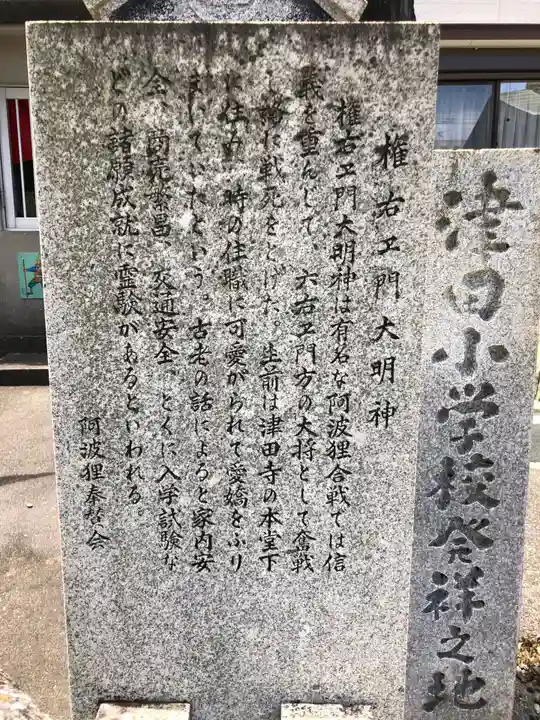 津田小学校発祥之地
権右ヱ門大明神
権右ヱ門大明神は有名な阿波狸合戦では信
義を重んじて、六右ヱ門方の大将として奮戦
に戦死をとげた。生前は津田寺の本堂下
に住み、時の住職に可愛がられて愛嬌をふり
まいていたという。古老の話によると家内安
全、商売繁昌、交通安全、とくに入学試験な
どの諸願成就に霊験があるといわれる。
阿波狸奉賛会